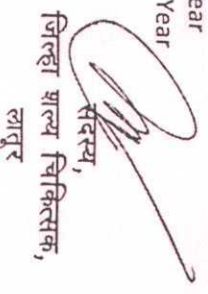 ear
Year
सदस्य,
जिल्हा शल्य चिकित्सक,
लातूर